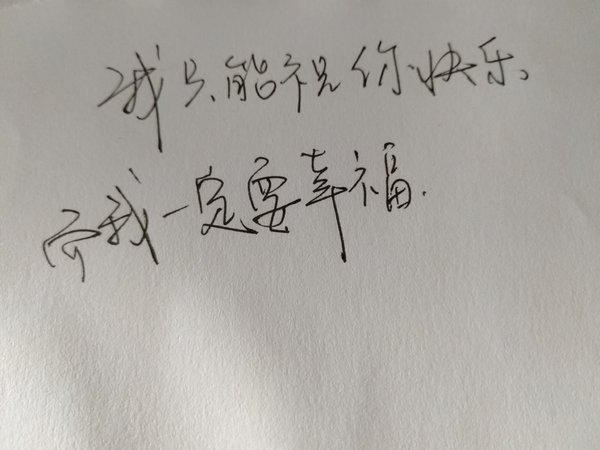 我只能祝你快乐。
而我一定要幸福.